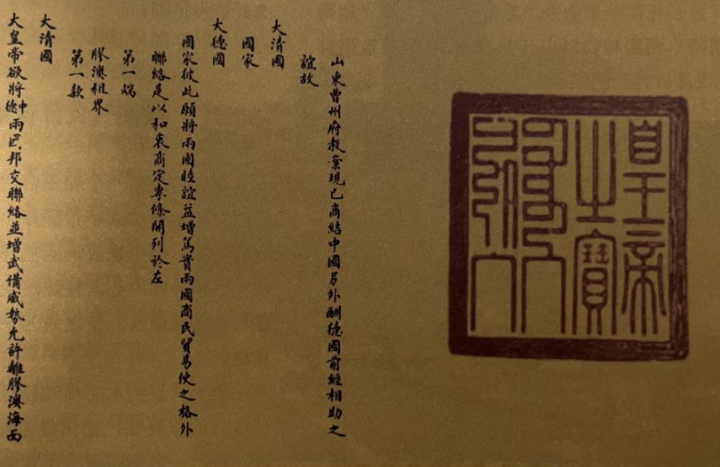 皇帝
之寶
山東曹州府教案現已商結中國另外酬德國前經相助之
誼故
大清國
國家
大德國
國家彼此願將兩國睦誼益增篤實兩國商民貿易使之格外
聯絡是以和衷商定專條開列於左
第一端
膠澳租界
第一款
大清國
大皇帝欲將中德兩國邦交聯絡並增武備威勢允許離膠澳海面